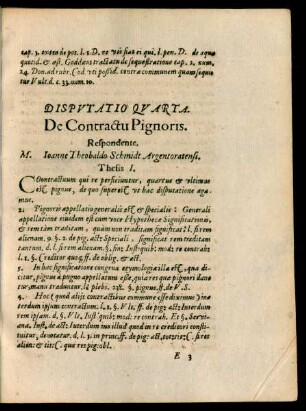 cap. 3. extra de pot. l. 3. D. ne vis fiat ei qui. l. pen. D. de aqua
quotid. & æst. Goddæus tractatu de sequestratione cap. 2. num.
24. Don. ad rubr. C. vt postes. contra communem quam sequi
tur Vult. d. c. 33. num. 10.
DISPVTATIO QVARTA.
De Contractu Pignoris.
Respondente.
M. Ioanne Theobaldo Schmidt Argentoratensi.
Thesis 1.
COntractuum qui re perficiuntur, quartus & vltimus
est pignus, de quo superest vt hac disputatione aga-
mus.
2. Pignoris appellatio generalis est & specialis: Generali
appellatione eiusdem est cum voce Hypothecæ Significationis,
& rem tàm traditam, quàm non traditam significat: l. si rem
alienam. 9. §. 2. de pig. act: Speciali, significat rem traditam
tantùm. d. l. si rem alienam. §. fin; Inst: quib: mod: re contrah:
l. 2. §. Creditor quoq. ff. de oblig. & act.
3. In hac significatione congrua etymologia illa est, qua di-
citur, pignus à pugno appellatum esse, quia res pignori datæ
manu traduntur. l. plebs. 238. §. pignus. ff. de V. S.
4. Hoc quod aliis contractibus commune esse diximus
ipsum contractum: l. 1. §. Vlt. ff. de pig: act: Interdum
rem ipsam. d. §. Vlt. Inst: quib: mod: re contrah. Et §. Servia-
na. Inst. de act: Interdum ius illud quod in re creditori consti-
tuitur, denotatur. d. l. 1. in princ. ff. de pig: act, tot. tit: C. si res
alien: & tit: C. quæ res pig: obl.
E 3